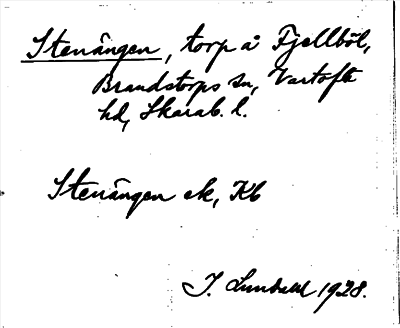 Stenängen, torp å Fjellböl,
Brandstorps sn, Vartofta
hd, Skarab. l.
Stenängen ek, Kb
J. Lundahl 1928.